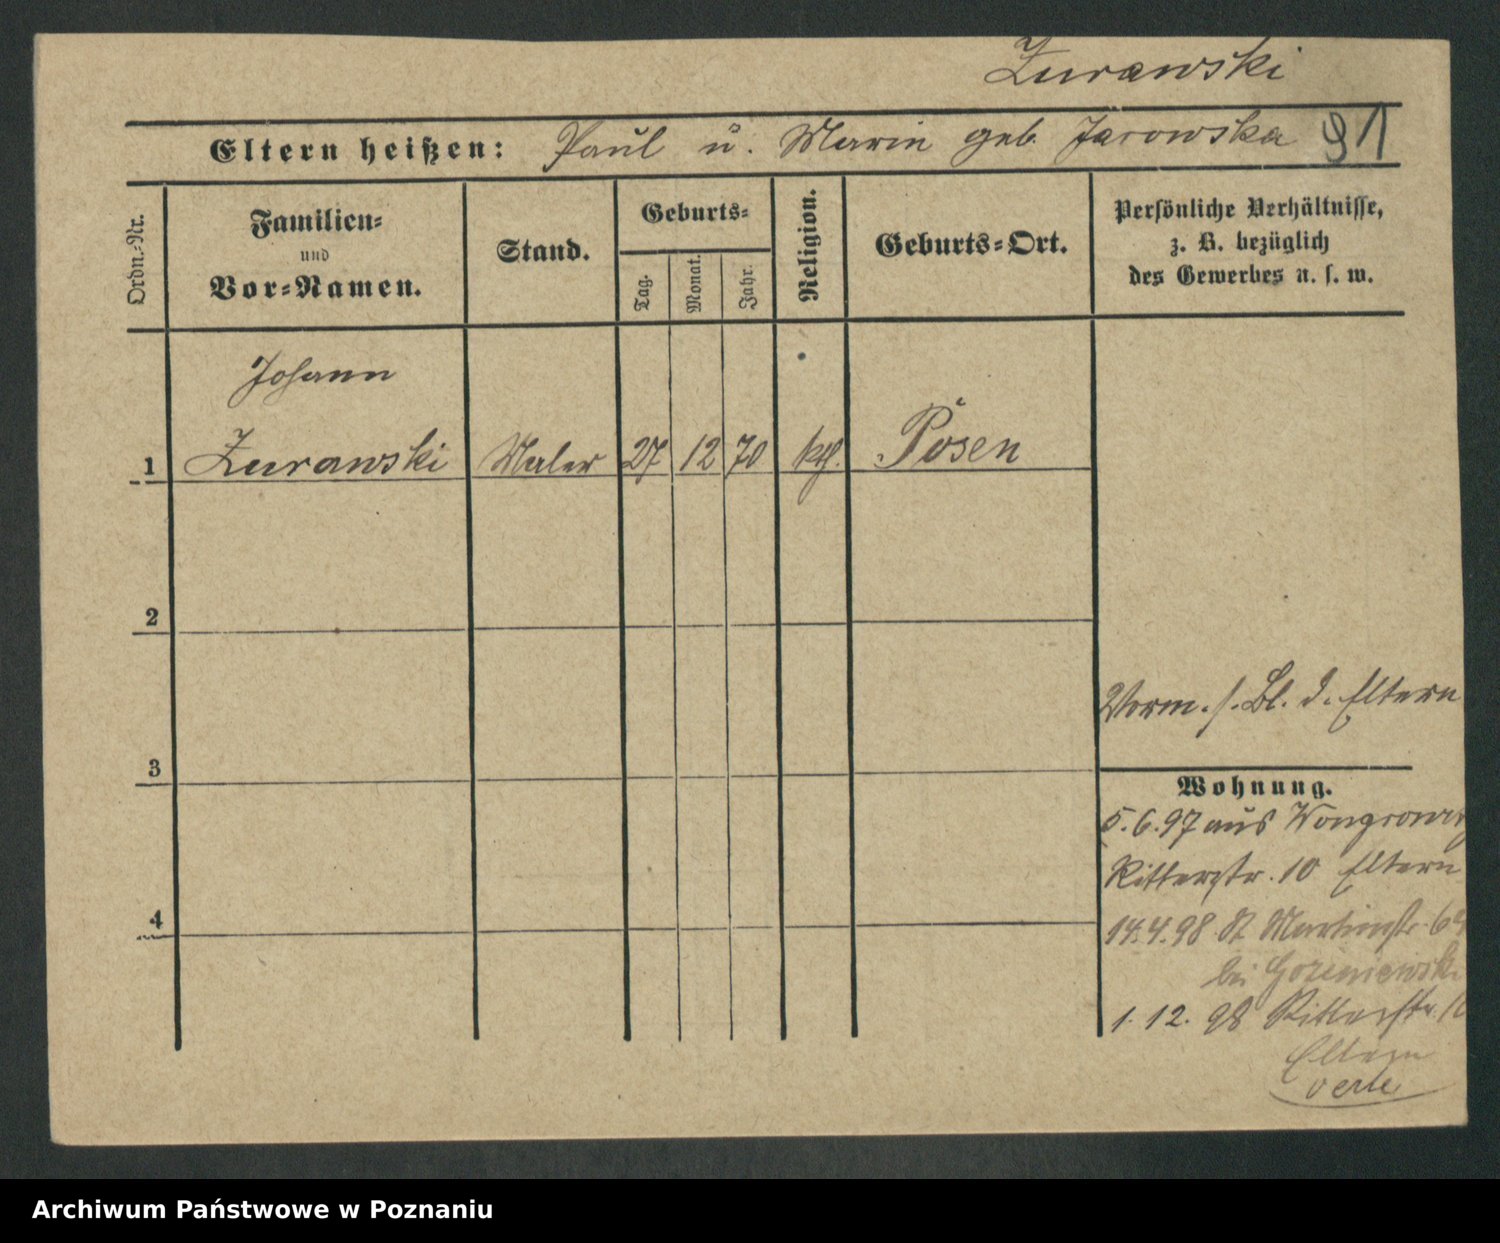 Zurawski
Eltern heißen: Paul u. Marie geb. Jarowska 91
Ordn.-Nr.
Familien-
und
Vor-Namen.
Stand.
Geburts-
Tag.
Monat.
Jahr.
Religion.
Geburts-Ort.
Persönliche Verhältnisse,
z. B. bezüglich
des Gewerbes u. s. w.
Johann
1 Zurawski Maler 27 12 70 ktl. Posen
2
3
4
Vorm. s. Bl. d. Eltern
Wohnung.
5.6.97 aus Wongrowitz
Ritterstr. 10 Eltern
14.4.98 St Martinstr.
bei
1. 12. 98 Ritterstr. 10
Eltern
Archiwum Państwowe w Poznaniu